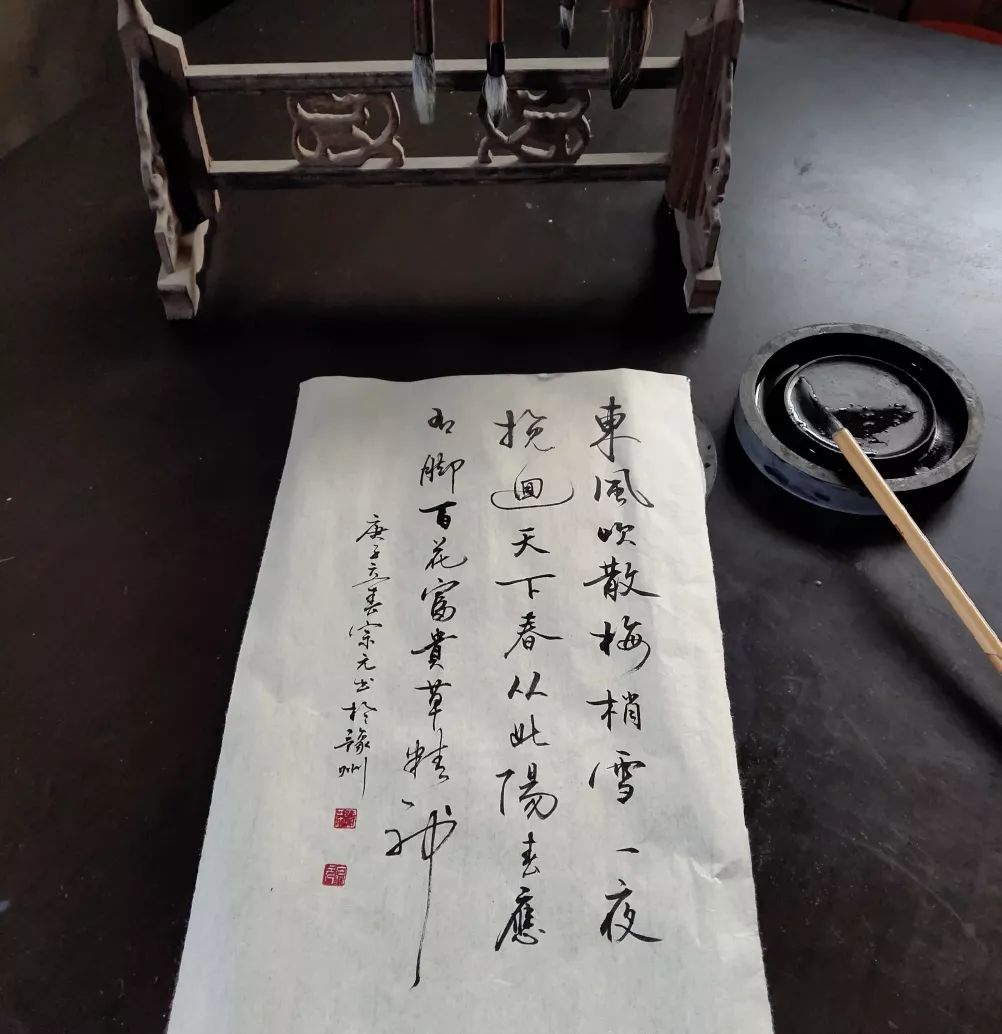 東風吹散梅梢雪一夜
挽回天下春从此陽春應
有脚百花富貴草精神
庚子立春宗元书於豫州